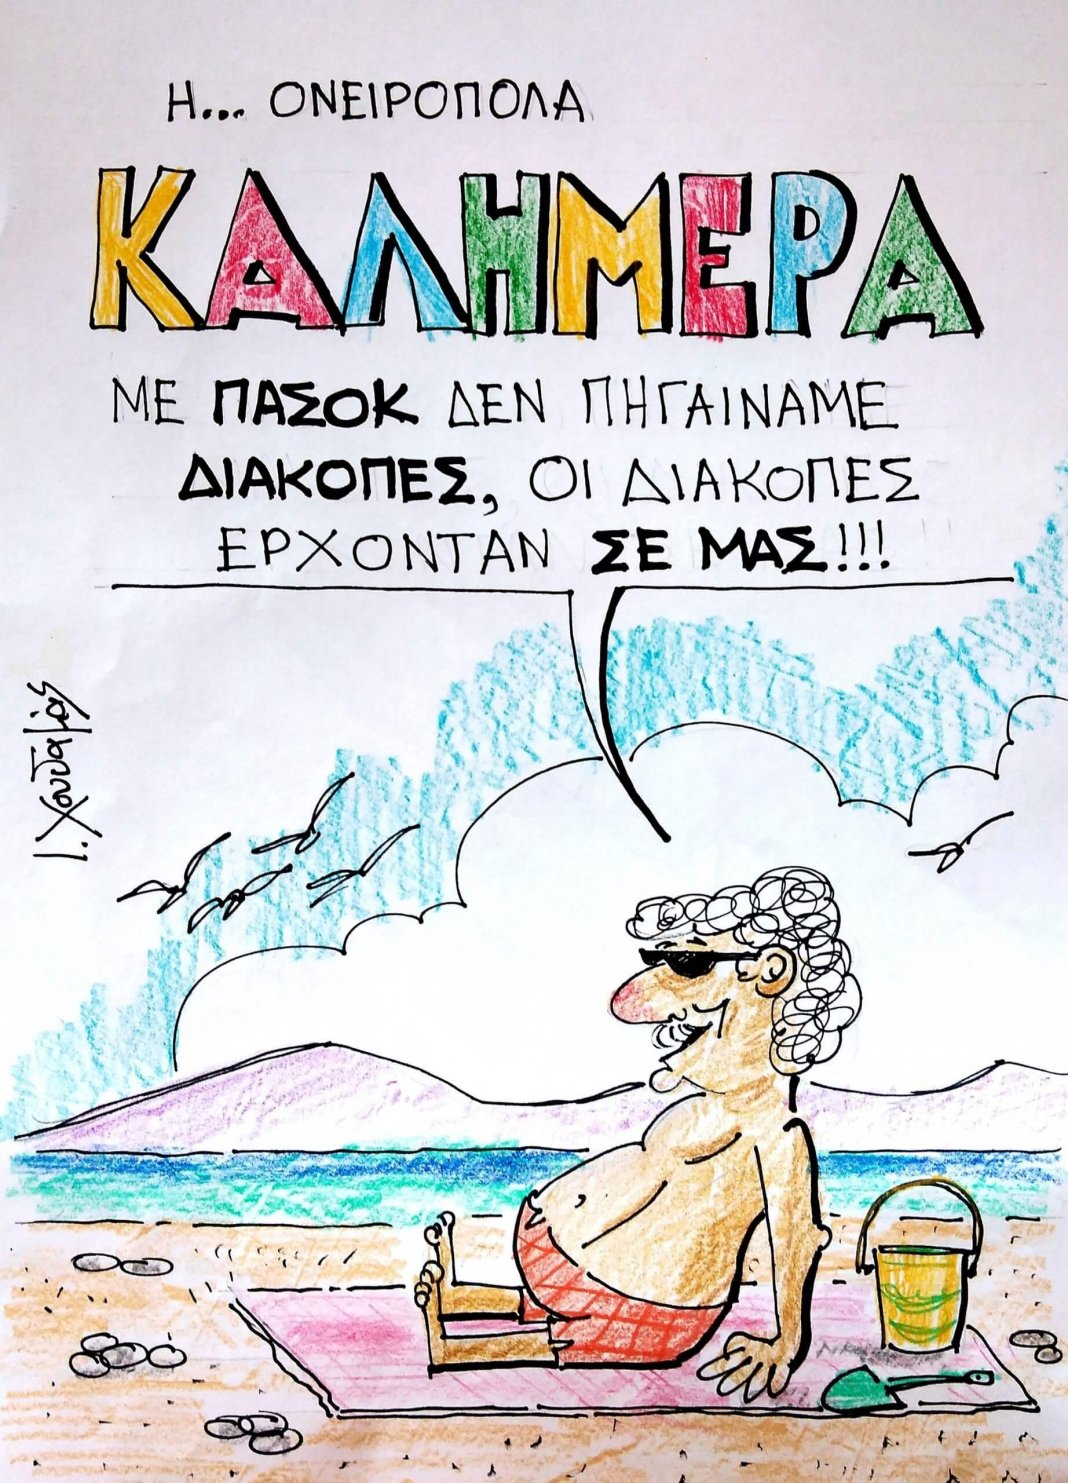 Η... ΟΝΕΙΡΟΠΟΛΑ
ΚΑΛΗΜΕΡΑ
ΜΕ ΠΑΣΟΚ ΔΕΝ ΠΗΓΑΙΝΑΜΕ
ΔΙΑΚΟΠΕΣ, ΟΙ ΔΙΑΚΟΠΕΣ
ΕΡΧΟΝΤΑΝ ΣΕ ΜΑΣ!!!